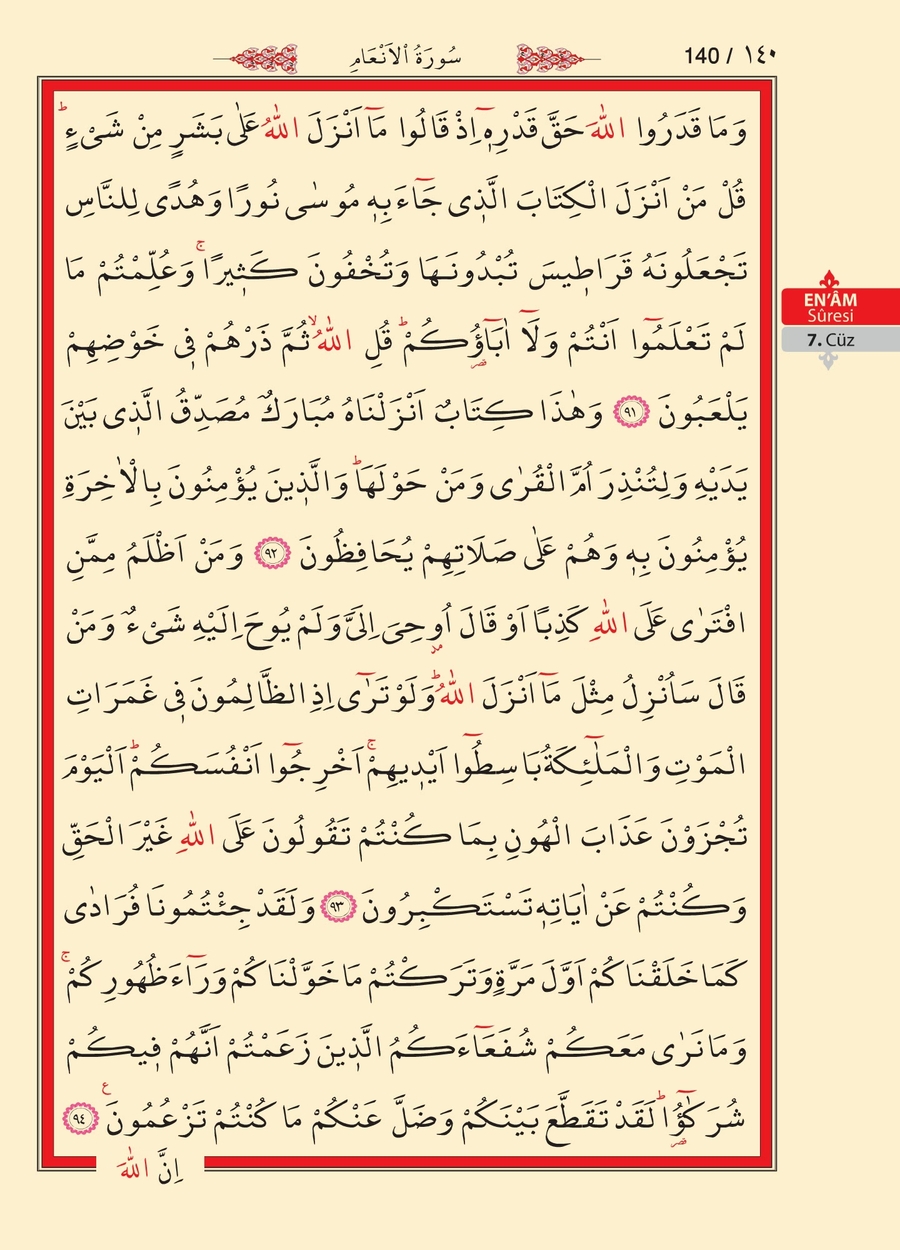 140 / ١٤٠
سُورَةُ الْاَنْعَامِ
وَمَا قَدَرُوا اللّٰهَ حَقَّ قَدْرِه۪ٓ اِذْ قَالُوا مَٓا اَنْزَلَ اللّٰهُ عَلٰى بَشَرٍ مِنْ شَیْءٍۜ
قُلْ مَنْ اَنْزَلَ الْكِتَابَ الَّذ۪ى جَٓاءَ بِه۪ مُوسٰى نُورًا وَهُدًى لِلنَّاسِ
تَجْعَلُونَهُ قَرَاط۪يسَ تُبْدُونَهَا وَتُخْفُونَ كَث۪يرًاۚ وَعُلِّمْتُمْ مَا
لَمْ تَعْلَمُٓوا اَنْتُمْ وَلَٓا اٰبَٓاؤُ۬كُمْۜ قُلِ اللّٰهُۙ ثُمَّ ذَرْهُمْ ف۪ى خَوْضِهِمْ
يَلْعَبُونَ ﴿٩١﴾ وَهٰذَا كِتَابٌ اَنْزَلْنَاهُ مُبَارَكٌ مُصَدِّقُ الَّذ۪ى بَيْنَ
يَدَيْهِ وَلِتُنْذِرَ اُمَّ الْقُرٰى وَمَنْ حَوْلَهَاۜ وَالَّذ۪ينَ يُؤْمِنُونَ بِالْاٰخِرَةِ
يُؤْمِنُونَ بِه۪ وَهُمْ عَلٰى صَلَاتِهِمْ يُحَافِظُونَ ﴿٩٢﴾ وَمَنْ اَظْلَمُ مِمَّنِ
افْتَرٰى عَلَى اللّٰهِ كَذِبًا اَوْ قَالَ اُو۫حِىَ اِلَىَّ وَلَمْ يُوحَ اِلَيْهِ شَیْءٌ وَمَنْ
قَالَ سَاُنْزِلُ مِثْلَ مَٓا اَنْزَلَ اللّٰهُۜ وَلَوْ تَرٰٓى اِذِ الظَّالِمُونَ ف۪ى غَمَرَاتِ
الْمَوْتِ وَالْمَلٰٓئِكَةُ بَاسِطُٓوا اَيْد۪يهِمْۚ اَخْرِجُٓوا اَنْفُسَكُمْۜ اَلْيَوْمَ
تُجْزَوْنَ عَذَابَ الْهُونِ بِمَا كُنْتُمْ تَقُولُونَ عَلَى اللّٰهِ غَيْرَ الْحَقِّ
وَكُنْتُمْ عَنْ اٰيَاتِه۪ تَسْتَكْبِرُونَ ﴿٩٣﴾ وَلَقَدْ جِئْتُمُونَا فُرَادٰى
كَمَا خَلَقْنَاكُمْ اَوَّلَ مَرَّةٍ وَتَرَكْتُمْ مَا خَوَّلْنَاكُمْ وَرَٓاءَ ظُهُورِكُمْۚ
وَمَا نَرٰى مَعَكُمْ شُفَعَٓاءَكُمُ الَّذ۪ينَ زَعَمْتُمْ اَنَّهُمْ ف۪يكُمْ
شُرَكٰٓؤُ۬اۜ لَقَدْ تَقَطَّعَ بَيْنَكُمْ وَضَلَّ عَنْكُمْ مَا كُنْتُمْ تَزْعُمُونَ۟ ﴿٩٤﴾
اِنَّ اللّٰهَ
EN'ÂM
Sûresi
7. Cüz